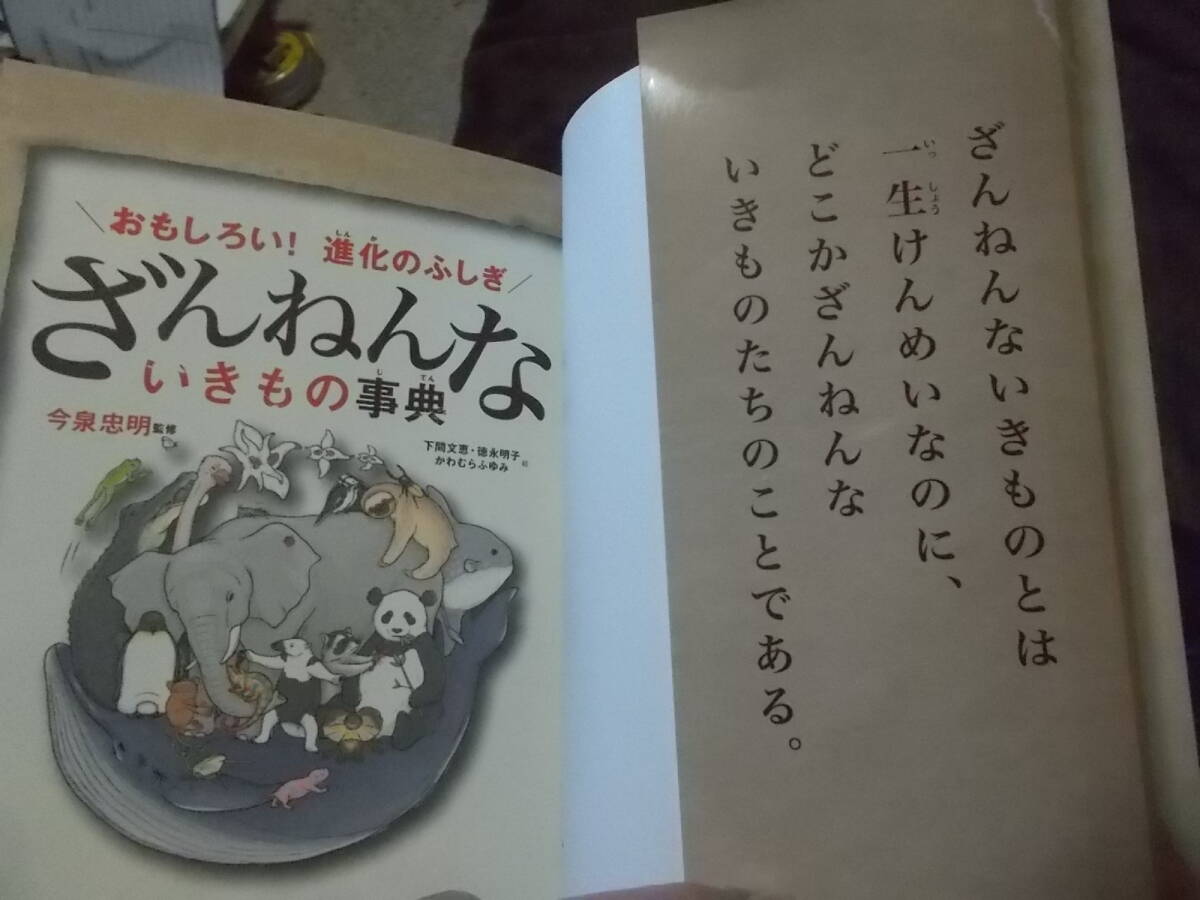 おもしろい！進化のふしぎ
ざんねんな
いきもの事典
今泉忠明監修
下間文恵・徳永明子
かわむらふゆみ 絵
ざんねんないきものとは
一生けんめいなのに、
どこかざんねんな
いきものたちのことである。